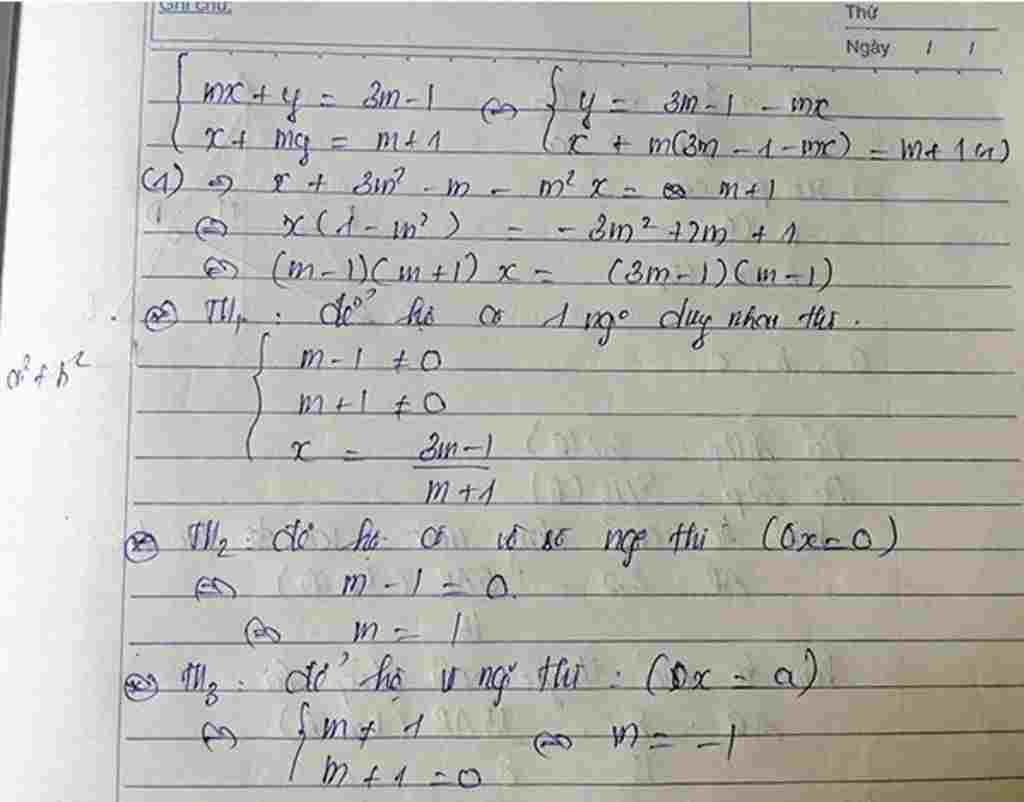 Ghi chú:
Thứ
Ngày / /
{ mx + y = 3m - 1 ⇔ { y = 3m - 1 - mx
x + my = m + 1 x + m(3m - 1 - mx) = m + 1 (1)
(1) ⇒ x + 3m² - m - m²x = m + 1
⇔ x(1 - m²) = -3m² + 2m + 1
⇔ (m - 1)(m + 1) x = (3m - 1)(m - 1)
* TH₁ : để hệ có 1 ngo duy nhất thì .
{ m - 1 ≠ 0
a² + b²
m + 1 ≠ 0
x = 3m - 1
m + 1
* TH₂ : để hệ có vô số ngo thì (0x = 0)
⇔ m - 1 = 0.
⇔ m = 1
* TH₃ : để hệ v ngo thì : (0x = a)
⇔ { m ≠ 1 ⇔ m = -1
m + 1 = 0